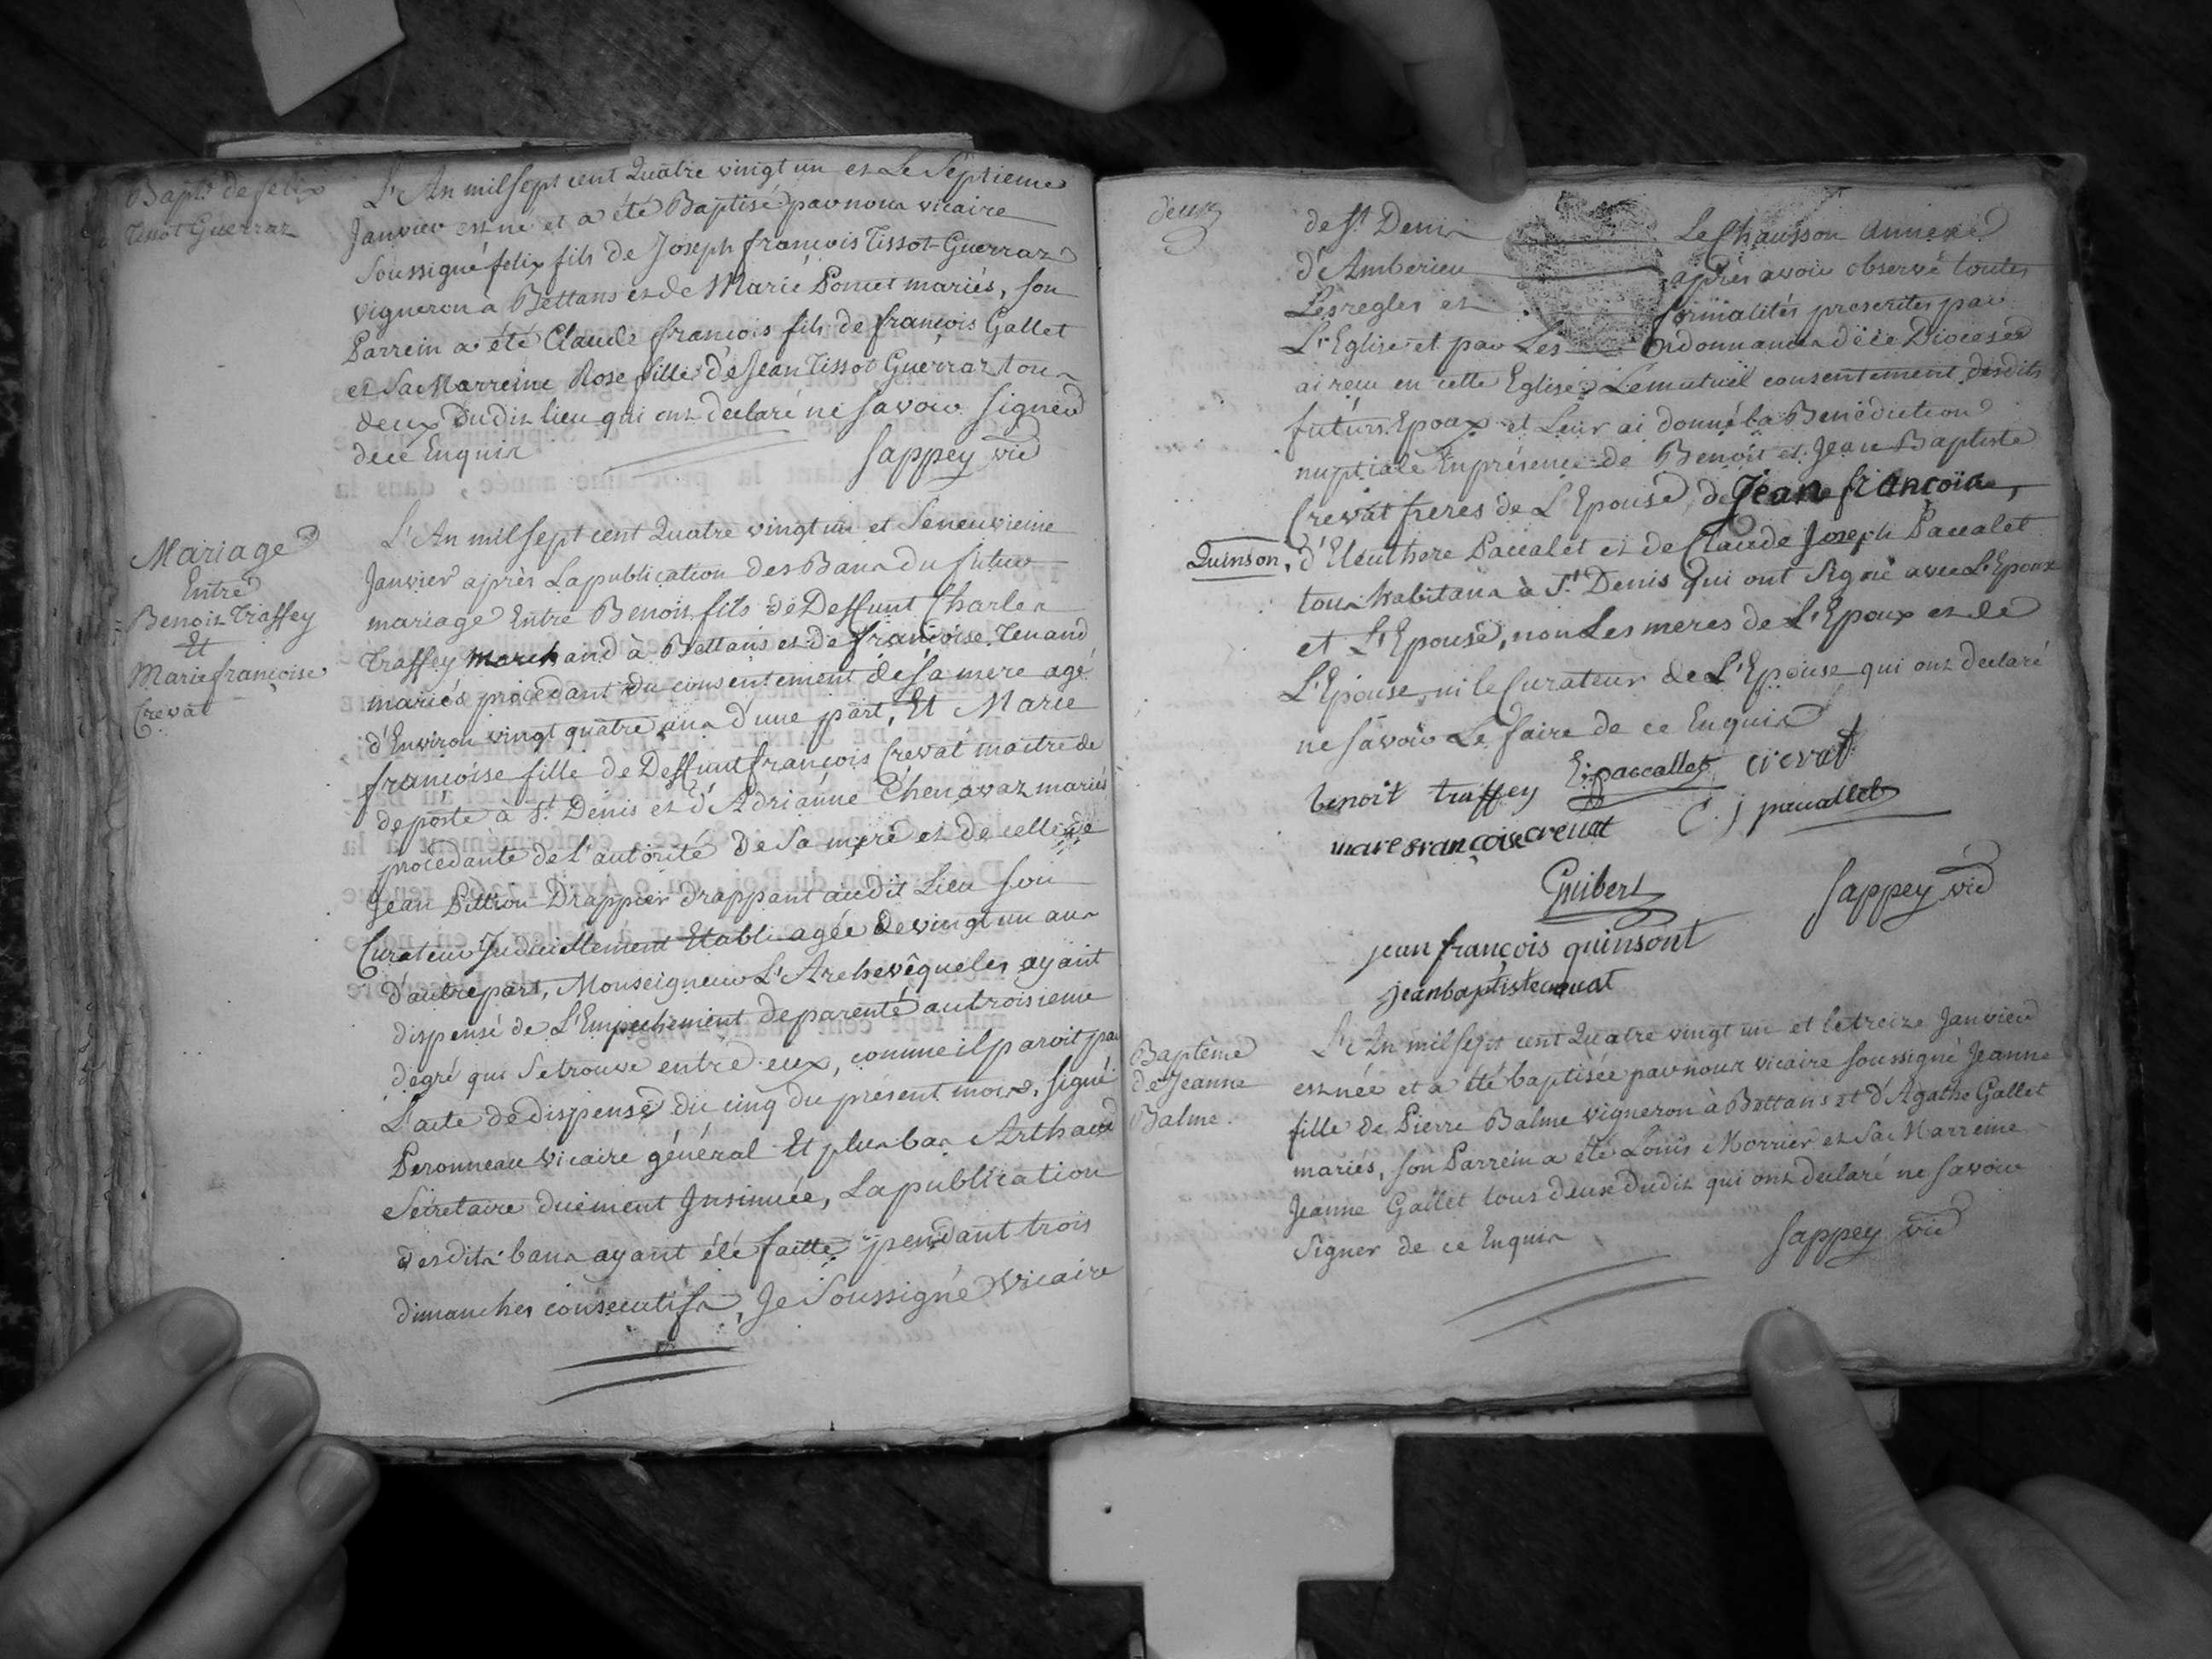 Bapt. de felix
Tissot Guerraz
L'An mil sept cent Quatre vingt un et Le Septieme
Janvier est né et a été Baptisé par nous vicaire
Soussigné felix fils de Joseph francois Tissot Guerraz
vigneron à Bettans et de Marie Poncet mariés, son
Parrein a été Claude francois fils de françois Gallet
et Sa Marreine Rose fille de Jean Tissot Guerraz tous
deux dudit lieu qui ont declaré ne savoir signer
de cé Enquis
Sappey vic
Mariage
Entre
Benoit Traffey
Et
Marie françoise
Crevat
L'An mil Sept cent Quatre vingt un et Le neuvieme
Janvier après La publication des Bans du futur
mariage Entre Benoit fils de Deffunt Charles
Traffey Marchand à Bettans et de françoise Tenand
mariés procedant du consentement de sa mere agé
d'Environ vingt quatre ans d'une part, Et Marie
françoise fille de Deffunt françois Crevat maitre de
de poste à St. Denis et d'Adrianne Chenavaz mariés
procedante de l'autorité de Sa mere et de celle de
Jean Pittion Drappier drappant audit Lieu son
Curateur Judiciellement Etabli agée de vingt un ans
d'autre part, Monseigneur L'Archevêque les ayant
dispensé de L'Empechement de parenté au troisieme
degré qui Se trouve entre eux, comme il paroit par
L'acte de dispense du cinq du présent mois, signé
Peronneau Vicaire général Et plus bas Arthaud
Sécretaire duement Insinuée, La publication
desdits bans ayant été faitte pendant trois
dimanches consecutifs, Je Soussigné Vicaire
deux
de St. Denis Le Chausson Annexe
d'Amberieu après avoir observé toutes
Les regles et formalités prescrites par
L'Eglise et par Les Ordonnances de ce Diocese
ai recu en cette Eglise Le mutuel consentement desdits
futurs Epoux et Leur ai donné la Benediction
nuptiale En présence de Benoit et Jean Baptiste
Crevat freres de L'Epouse, de Jean françois,
Quinson, d'Eleuthere Paccalet et de Claude Joseph Paccalet
tous habitans à St. Denis Qui ont Signé avec L'Epoux
et L'Epouse, non Les meres de L'Epoux et de
L'Epouse, ni le Curateur de L'Epouse qui ont declaré
ne savoir Le faire de ce Enquis
benoit traffey E: paccallet crevat
marie françoise crevat C. j paccallet
Guibert Sappey vic
jean françois quinsont
jean baptiste crevat
Baptême
de Jeanne
Balme.
L'An mil Sept cent Quatre vingt un et le treize Janvier
est née et a été baptisée par nous vicaire soussigné Jeanne
fille de Pierre Balme vigneron à Bettans et d'Agathe Gallet
mariés, son Parrein a été Louis Morrier et Sa Marreine
Jeanne Gallet tous deux dudit qui ont declaré ne savoir
Signer de ce Enquis
Sappey vic